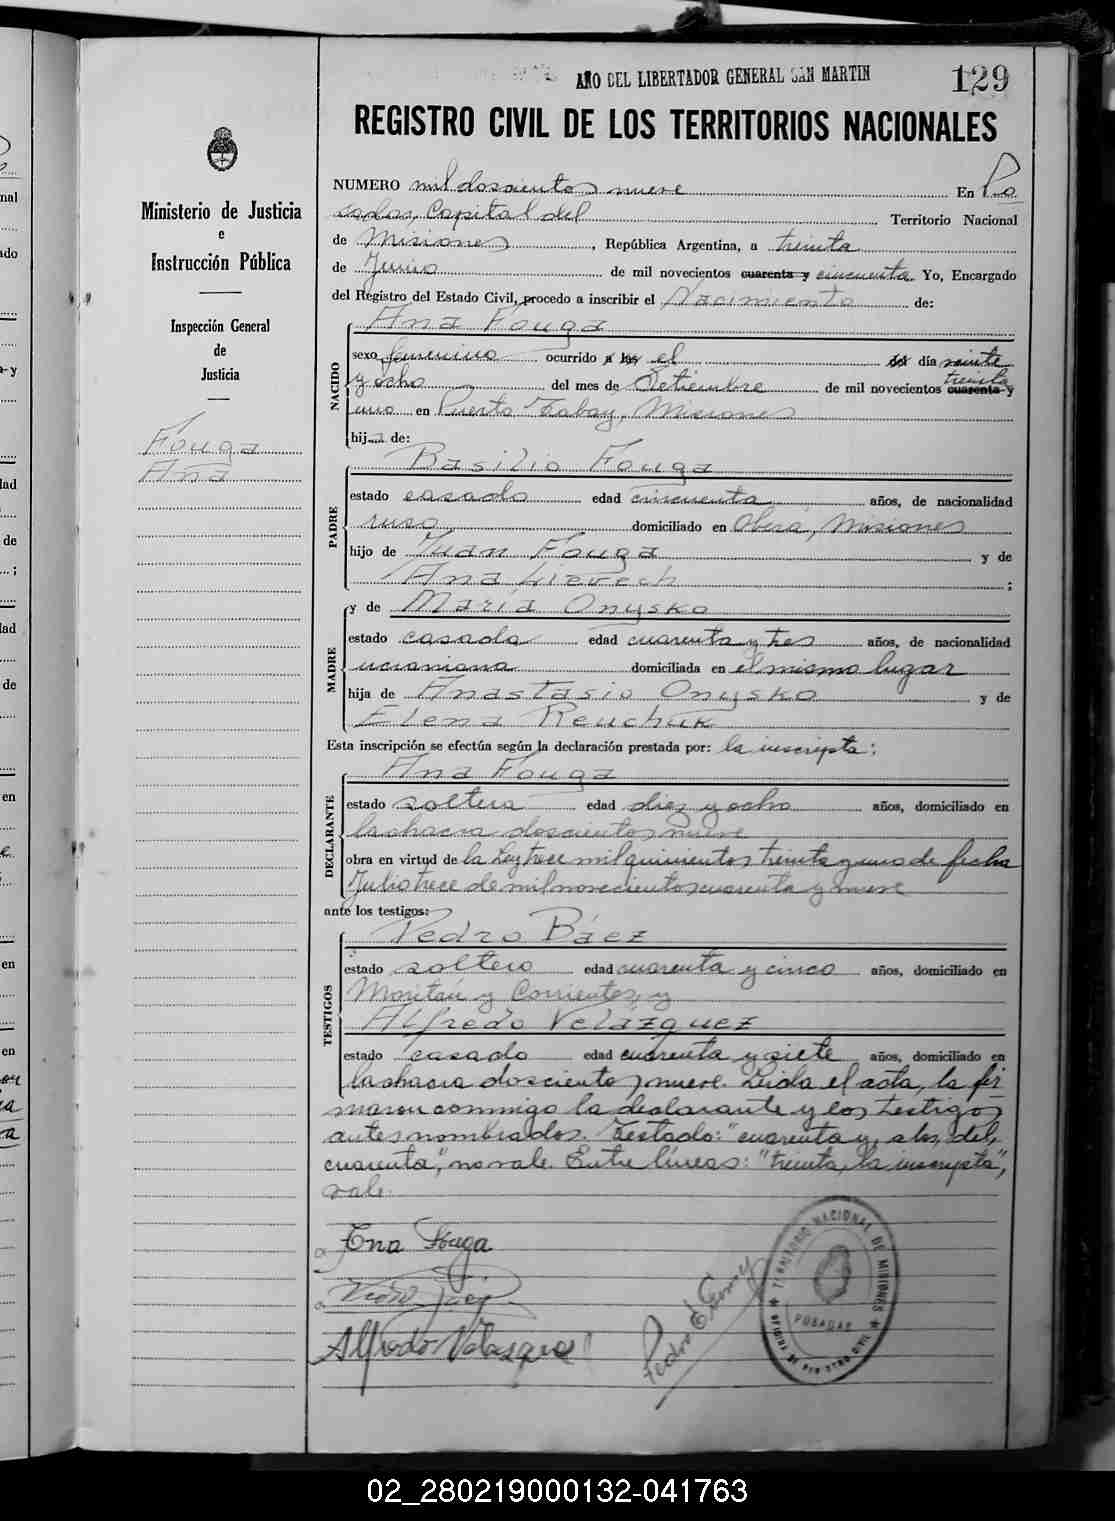 AÑO DEL LIBERTADOR GENERAL SAN MARTIN
129
REGISTRO CIVIL DE LOS TERRITORIOS NACIONALES
Ministerio de Justicia
e
Instrucción Pública
Inspección General
de
Justicia
Fouga
Ana
NUMERO mil doscientos nueve En Po
sadas, Capital del Territorio Nacional
de Misiones, República Argentina, a treinta
de Junio de mil novecientos cuarenta y cincuenta Yo, Encargado
del Registro del Estado Civil, procedo a inscribir el Nacimiento de:
NACIDO
Ana Fouga
sexo femenino ocurrido a las el del día veinte
treinta
y ocho del mes de Setiembre de mil novecientos cuarenta y
uno en Puerto Tabay, Misiones
hija de:
PADRE
Basilio Fouga
estado casado edad cincuenta años, de nacionalidad
ruso domiciliado en Oberá, Misiones
hijo de Juan Fouga y de
Ana ;
MADRE
y de María Onysko
estado casada edad cuarenta y tres años, de nacionalidad
ucraniana domiciliada en el mismo lugar
hija de Anastasio Onysko y de
Elena
Esta inscripción se efectúa según la declaración prestada por: la inscripta:
DECLARANTE
Ana Fouga
estado soltera edad diez y ocho años, domiciliado en
la chacra doscientos nueve
obra en virtud de la Ley trece mil quinientos treinta y uno de fecha
Julio trece de mil novecientos cuarenta y nueve
ante los testigos:
TESTIGOS
Pedro Báez
estado soltero edad cuarenta y cinco años, domiciliado en
y Corrientes, y
Alfredo Velázquez
estado casado edad cuarenta y siete años, domiciliado en
la chacra doscientos nueve. Leída el acta, la fir
maron conmigo la declarante y los testigos
antes nombrados. Testado: "cuarenta y, a las, del,
cuarenta", no vale. Entre líneas: "treinta, la inscripta",
vale.
Ana Fouga
Pedro Báez
Alfredo Velasquez
Pedro E. Gomez
TERRITORIO NACIONAL DE MISIONES
POSADAS
OFICINA DE REGISTRO CIVIL
02_280219000132-041763